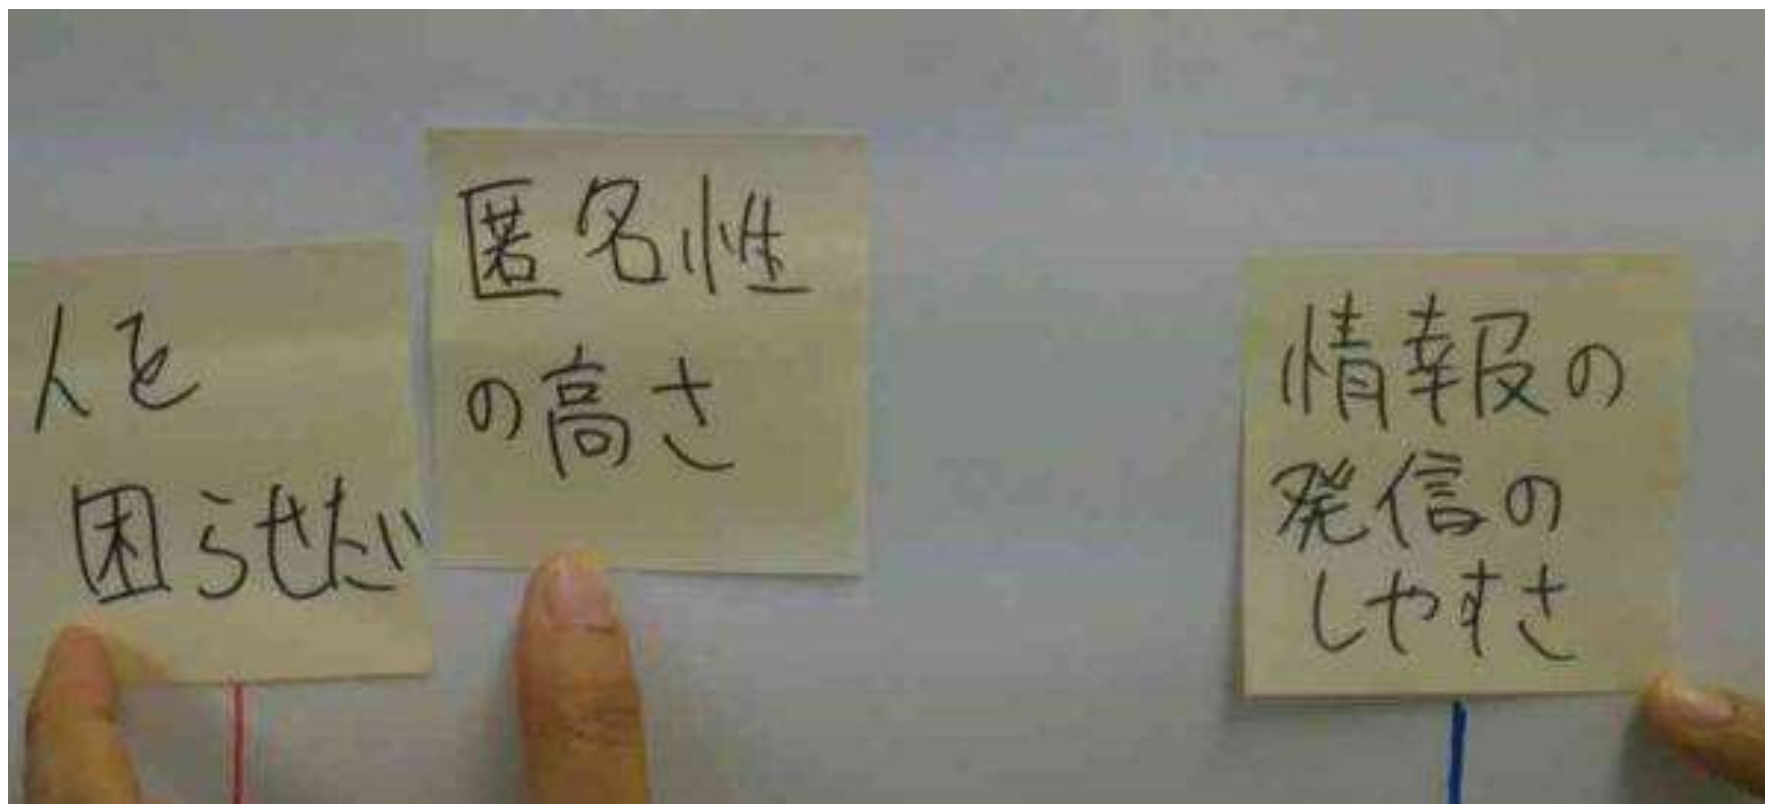 人を
困らせたい
匿名性
の高さ
情報の
発信の
しやすさ